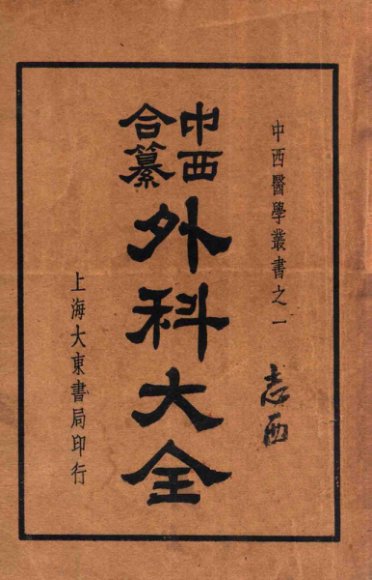 中西醫學叢書之一
中西
合纂
外科大全
上海大東書局印行